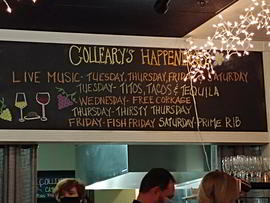 COLLEARY'S HAPPEN
LIVE MUSIC-TUESDAY, THURSDAY, FRIDAY SATURDAY
TUESDAY-TITOS, TACOS & TEQUILA
WEDNESDAY-FREE CORKAGE
THURSDAY-THIRSTY THURSDAY
FRIDAY-FISH FRIDAY SATURDAY-PRIME RIB